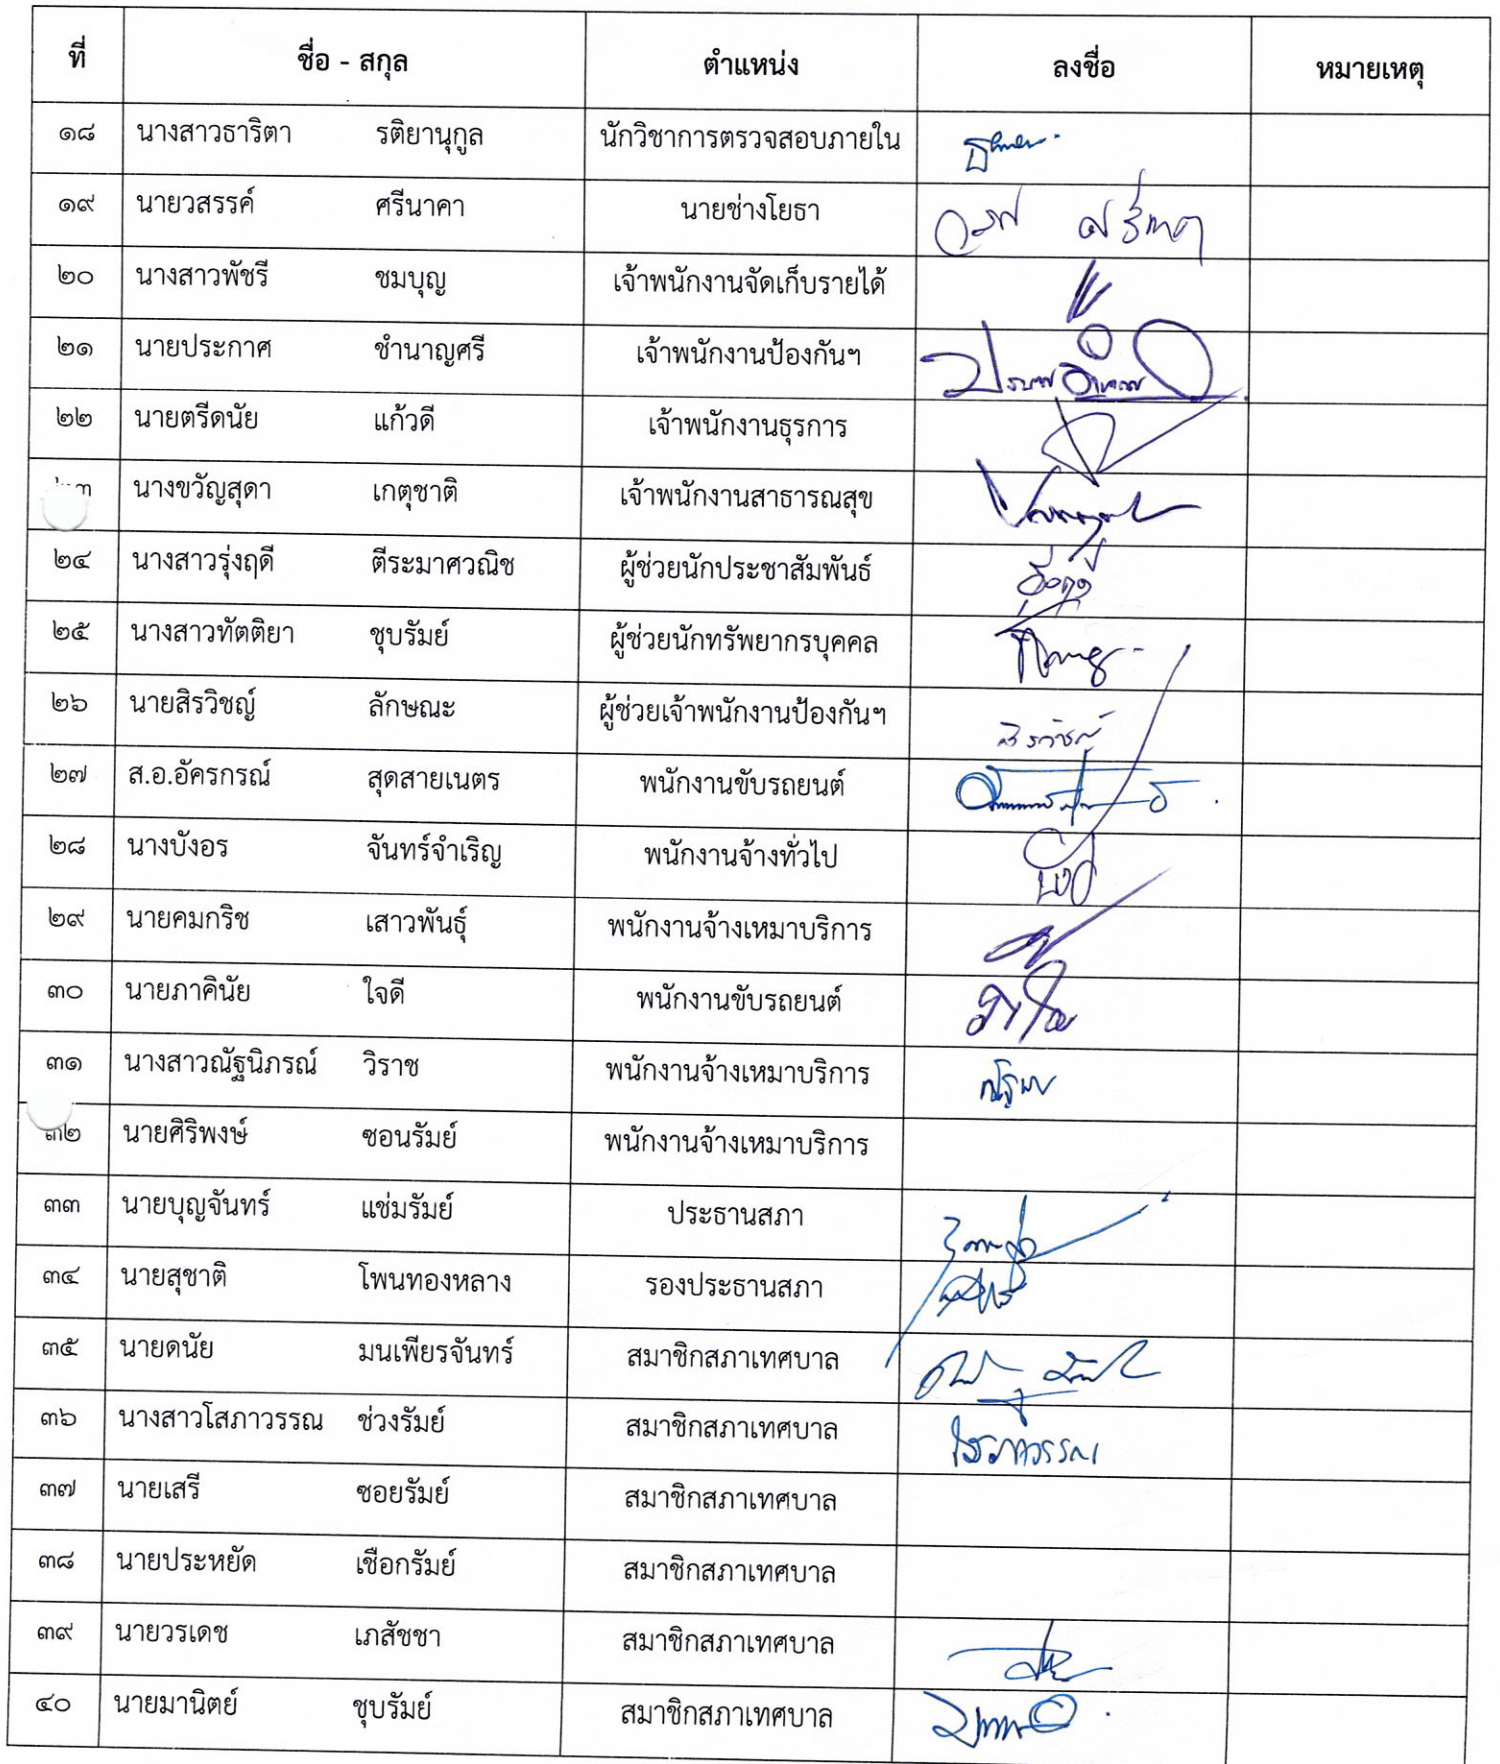 ที่ ชื่อ - สกุล ตำแหน่ง ลงชื่อ หมายเหตุ
๑๘ นางสาวธาริตา รติยานุกูล นักวิชาการตรวจสอบภายใน
๑๙ นายวสรรค์ ศรีนาคา นายช่างโยธา
๒๐ นางสาวพัชรี ชมบุญ เจ้าพนักงานจัดเก็บรายได้
๒๑ นายประกาศ ชำนาญศรี เจ้าพนักงานป้องกันฯ
๒๒ นายตรีดนัย แก้วดี เจ้าพนักงานธุรการ
นางขวัญสุดา เกตุชาติ เจ้าพนักงานสาธารณสุข
๒๔ นางสาวรุ่งฤดี ตีระมาศวณิช ผู้ช่วยนักประชาสัมพันธ์ รุ่งฤดี
๒๕ นางสาวทัตติยา ชุบรัมย์ ผู้ช่วยนักทรัพยากรบุคคล
๒๖ นายสิรวิชญ์ ลักษณะ ผู้ช่วยเจ้าพนักงานป้องกันฯ สิรวิชญ์
๒๗ ส.อ.อัครกรณ์ สุดสายเนตร พนักงานขับรถยนต์
๒๘ นางบังอร จันทร์จำเริญ พนักงานจ้างทั่วไป
๒๙ นายคมกริช เสาวพันธุ์ พนักงานจ้างเหมาบริการ
๓๐ นายภาคินัย ใจดี พนักงานขับรถยนต์
๓๑ นางสาวณัฐนิภรณ์ วิราช พนักงานจ้างเหมาบริการ
๓๒ นายศิริพงษ์ ซอนรัมย์ พนักงานจ้างเหมาบริการ
๓๓ นายบุญจันทร์ แช่มรัมย์ ประธานสภา
๓๔ นายสุชาติ โพนทองหลาง รองประธานสภา
๓๕ นายดนัย มนเพียรจันทร์ สมาชิกสภาเทศบาล
๓๖ นางสาวโสภาวรรณ ช่วงรัมย์ สมาชิกสภาเทศบาล โสภาวรรณ
๓๗ นายเสรี ซอยรัมย์ สมาชิกสภาเทศบาล
๓๘ นายประหยัด เชือกรัมย์ สมาชิกสภาเทศบาล
๓๙ นายวรเดช เภสัชชา สมาชิกสภาเทศบาล
๔๐ นายมานิตย์ ชุบรัมย์ สมาชิกสภาเทศบาล